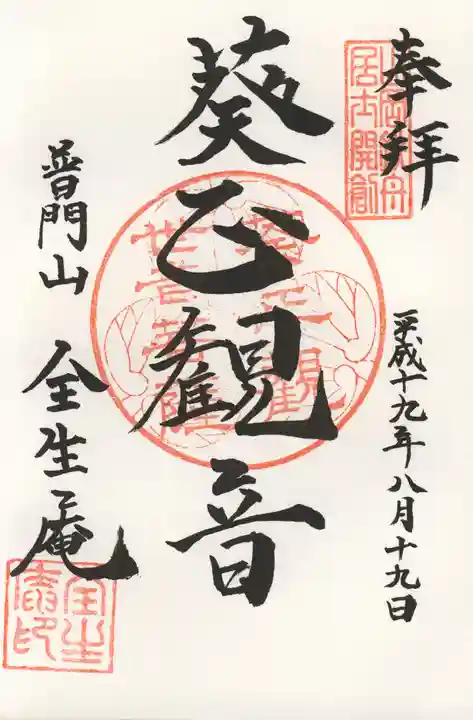 奉拝
山岡鉄舟
居士開創
平成十九年八月十九日
葵正観音
葵正観
世音菩薩
普門山 全生庵
全生
庵印